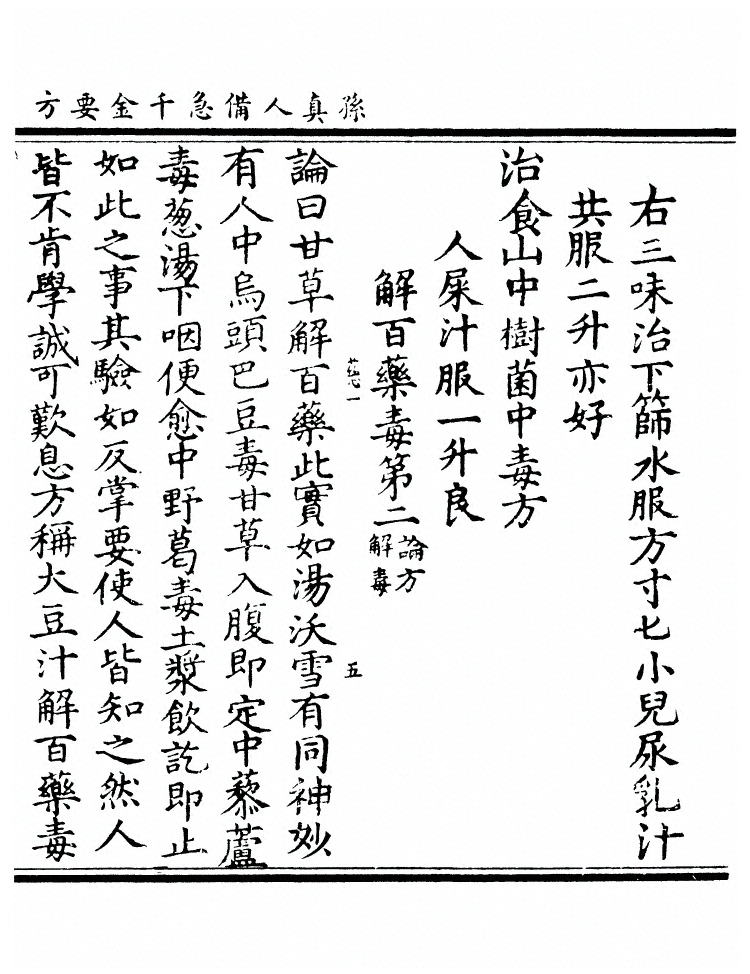 孫真人備急千金要方
右三味治下篩水服方寸匕小兒尿乳汁
共服二升亦好
治食山中樹菌中毒方
人屎汁服一升良
解百藥毒第二論方解毒
論曰甘草解百藥此實如湯沃雪有同神妙
有人中烏頭巴豆毒甘草入腹即定中藜蘆
毒葱湯下咽便愈中野葛毒土漿飲訖即止
如此之事其驗如反掌要使人皆知之然人
皆不肯學誠可歎息方稱大豆汁解百藥毒
五